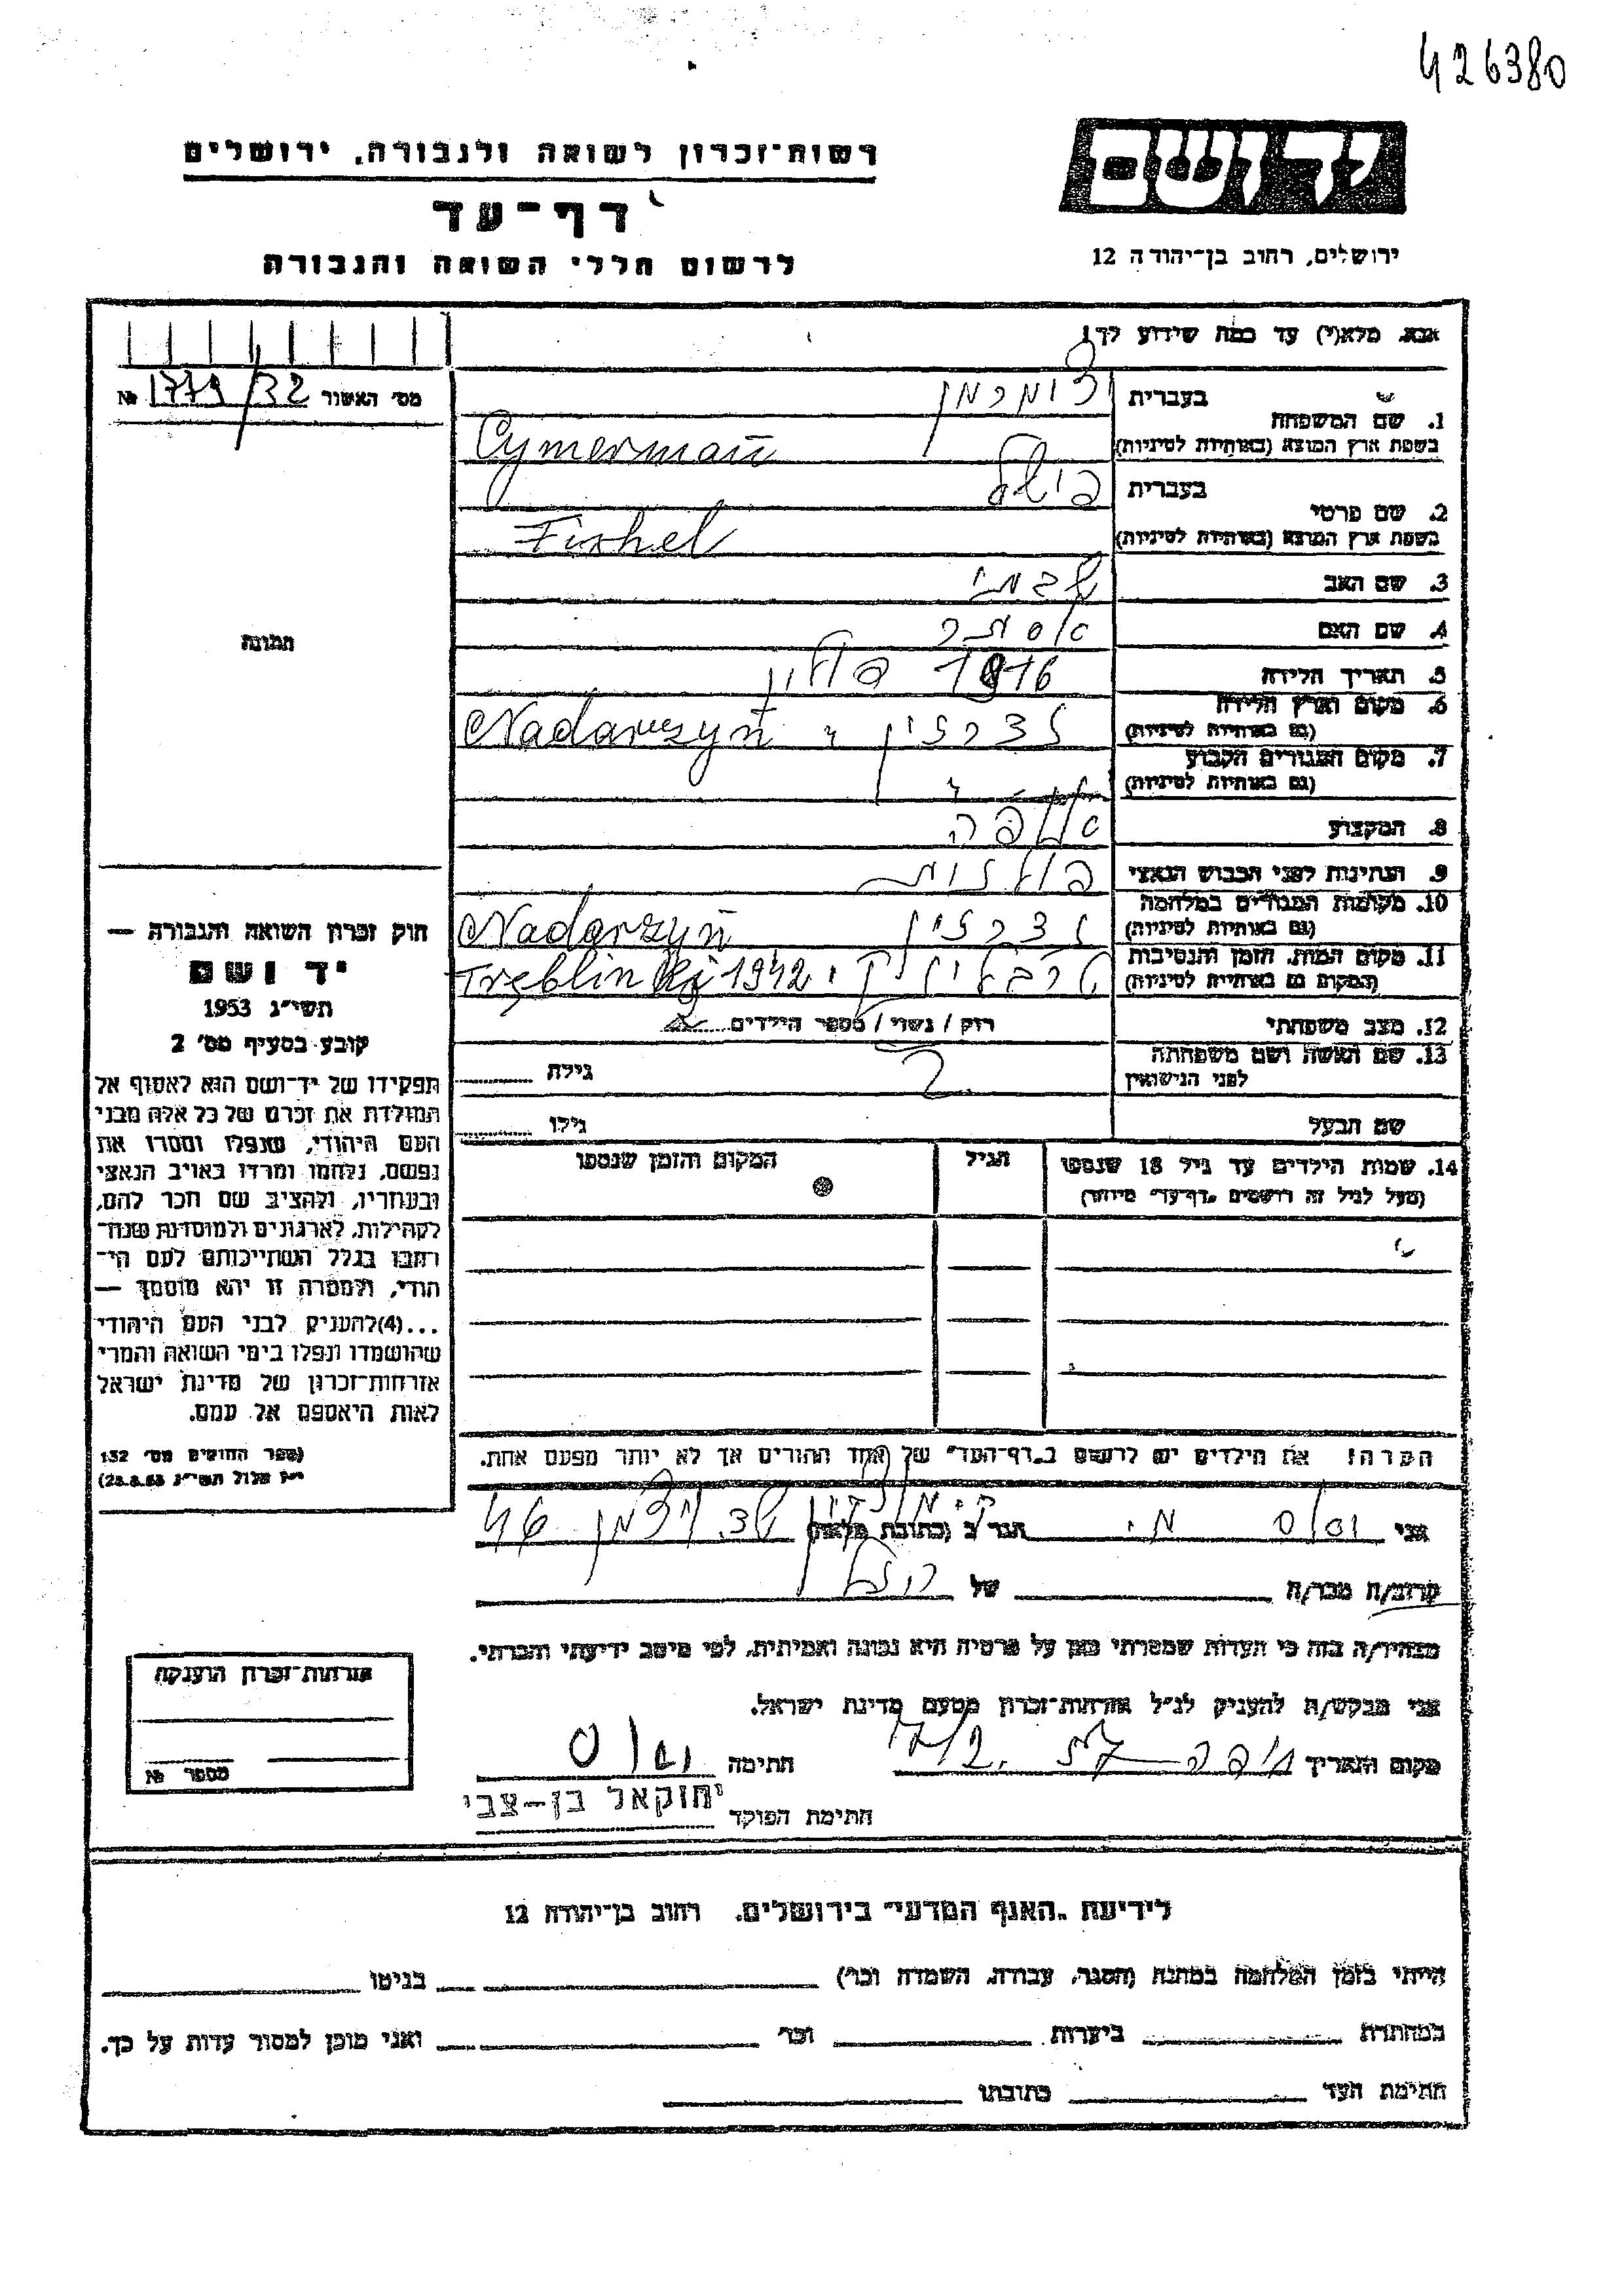 426380
יד ושם
רשות־זכרון לשואה ולגבורה, ירושלים
דף־עד
לרשום חללי השואה והגבורה
ירושלים, רחוב בן־יהודה 12
אנא, מלא(י) עד כמה שידוע לך!
מס׳ האשור 1779/32 №
1. שם המשפחה
בעברית
בשפת ארץ המוצא (באותיות לטיניות) Cymerman
2. שם פרטי
בעברית פישל
בשפת ארץ המוצא (באותיות לטיניות) Fishel
3. שם האב
4. שם האם
5. תאריך הלידה 1916 פולין
6. מקום וארץ הלידה
(גם באותיות לטיניות) Nadarzyń
7. מקום המגורים הקבוע
(גם באותיות לטיניות)
8. המקצוע
9. הנתינות לפני הכבוש הנאצי פולנית
10. מקומות המגורים במלחמה
(גם באותיות לטיניות) Nadarzyń
11. מקום המות, הזמן והנסיבות
(המקום גם באותיות לטיניות) טרבלינקי Treblinki 1942
12. מצב משפחתי רווק / נשוי / מספר הילדים
13. שם האשה ושם משפחתה
לפני הנישואין ? גילה
שם הבעל גילו
14. שמות הילדים עד גיל 18 שנספו הגיל המקום והזמן שנספו
(מעל לגיל זה רושמים „דף־עד״ מיוחד)
הערה! את הילדים יש לרשום ב„דף־העד״ של אחד ההורים אך לא יותר מפעם אחת.
תמונה
חוק זכרון השואה והגבורה —
יד ושם
תשי״ג 1953
קובע בסעיף מס׳ 2
תפקידו של יד־ושם הוא לאסוף אל
המולדת את זכרם של כל אלה מבני
העם היהודי, שנפלו ומסרו את
נפשם, נלחמו ומרדו באויב הנאצי
ובעוזריו, ולהציב שם וזכר להם,
לקהילות, לארגונים ולמוסדות שנח־
רבו בגלל השתייכותם לעם הי־
הודי, ולמטרה זו יהא מוסמך —
...(4)להעניק לבני העם היהודי
שהושמדו ונפלו בימי השואה והמרי
אזרחות־זכרון של מדינת ישראל
לאות היאספם אל עמם.
(ספר החוקים מס׳ 132
י״ז אלול תשי״ג 28.8.53)
אני הגר ב (כתובת מלאה) 46
קרוב/ה מכר/ה של
מצהיר/ה בזה כי העדות שמסרתי כאן על פרטיה היא נכונה ואמיתית, לפי מיטב ידיעתי והכרתי.
אני מבקש/ת להעניק לנ״ל אזרחות־זכרון מטעם מדינת ישראל.
מקום ותאריך חיפה חתימה
חתימת הפוקד יחזקאל בן-צבי
אזרחות־זכרון הוענקה
מספר №
לידיעת „האגף המדעי״ בירושלים, רחוב בן־יהודה 12
הייתי בזמן המלחמה במחנה (הסגר, עבודה, השמדה וכר׳) בגיטו
במחתרת ביערות וכר׳ ואני מוכן למסור עדות על כך.
חתימת העד כתובתו